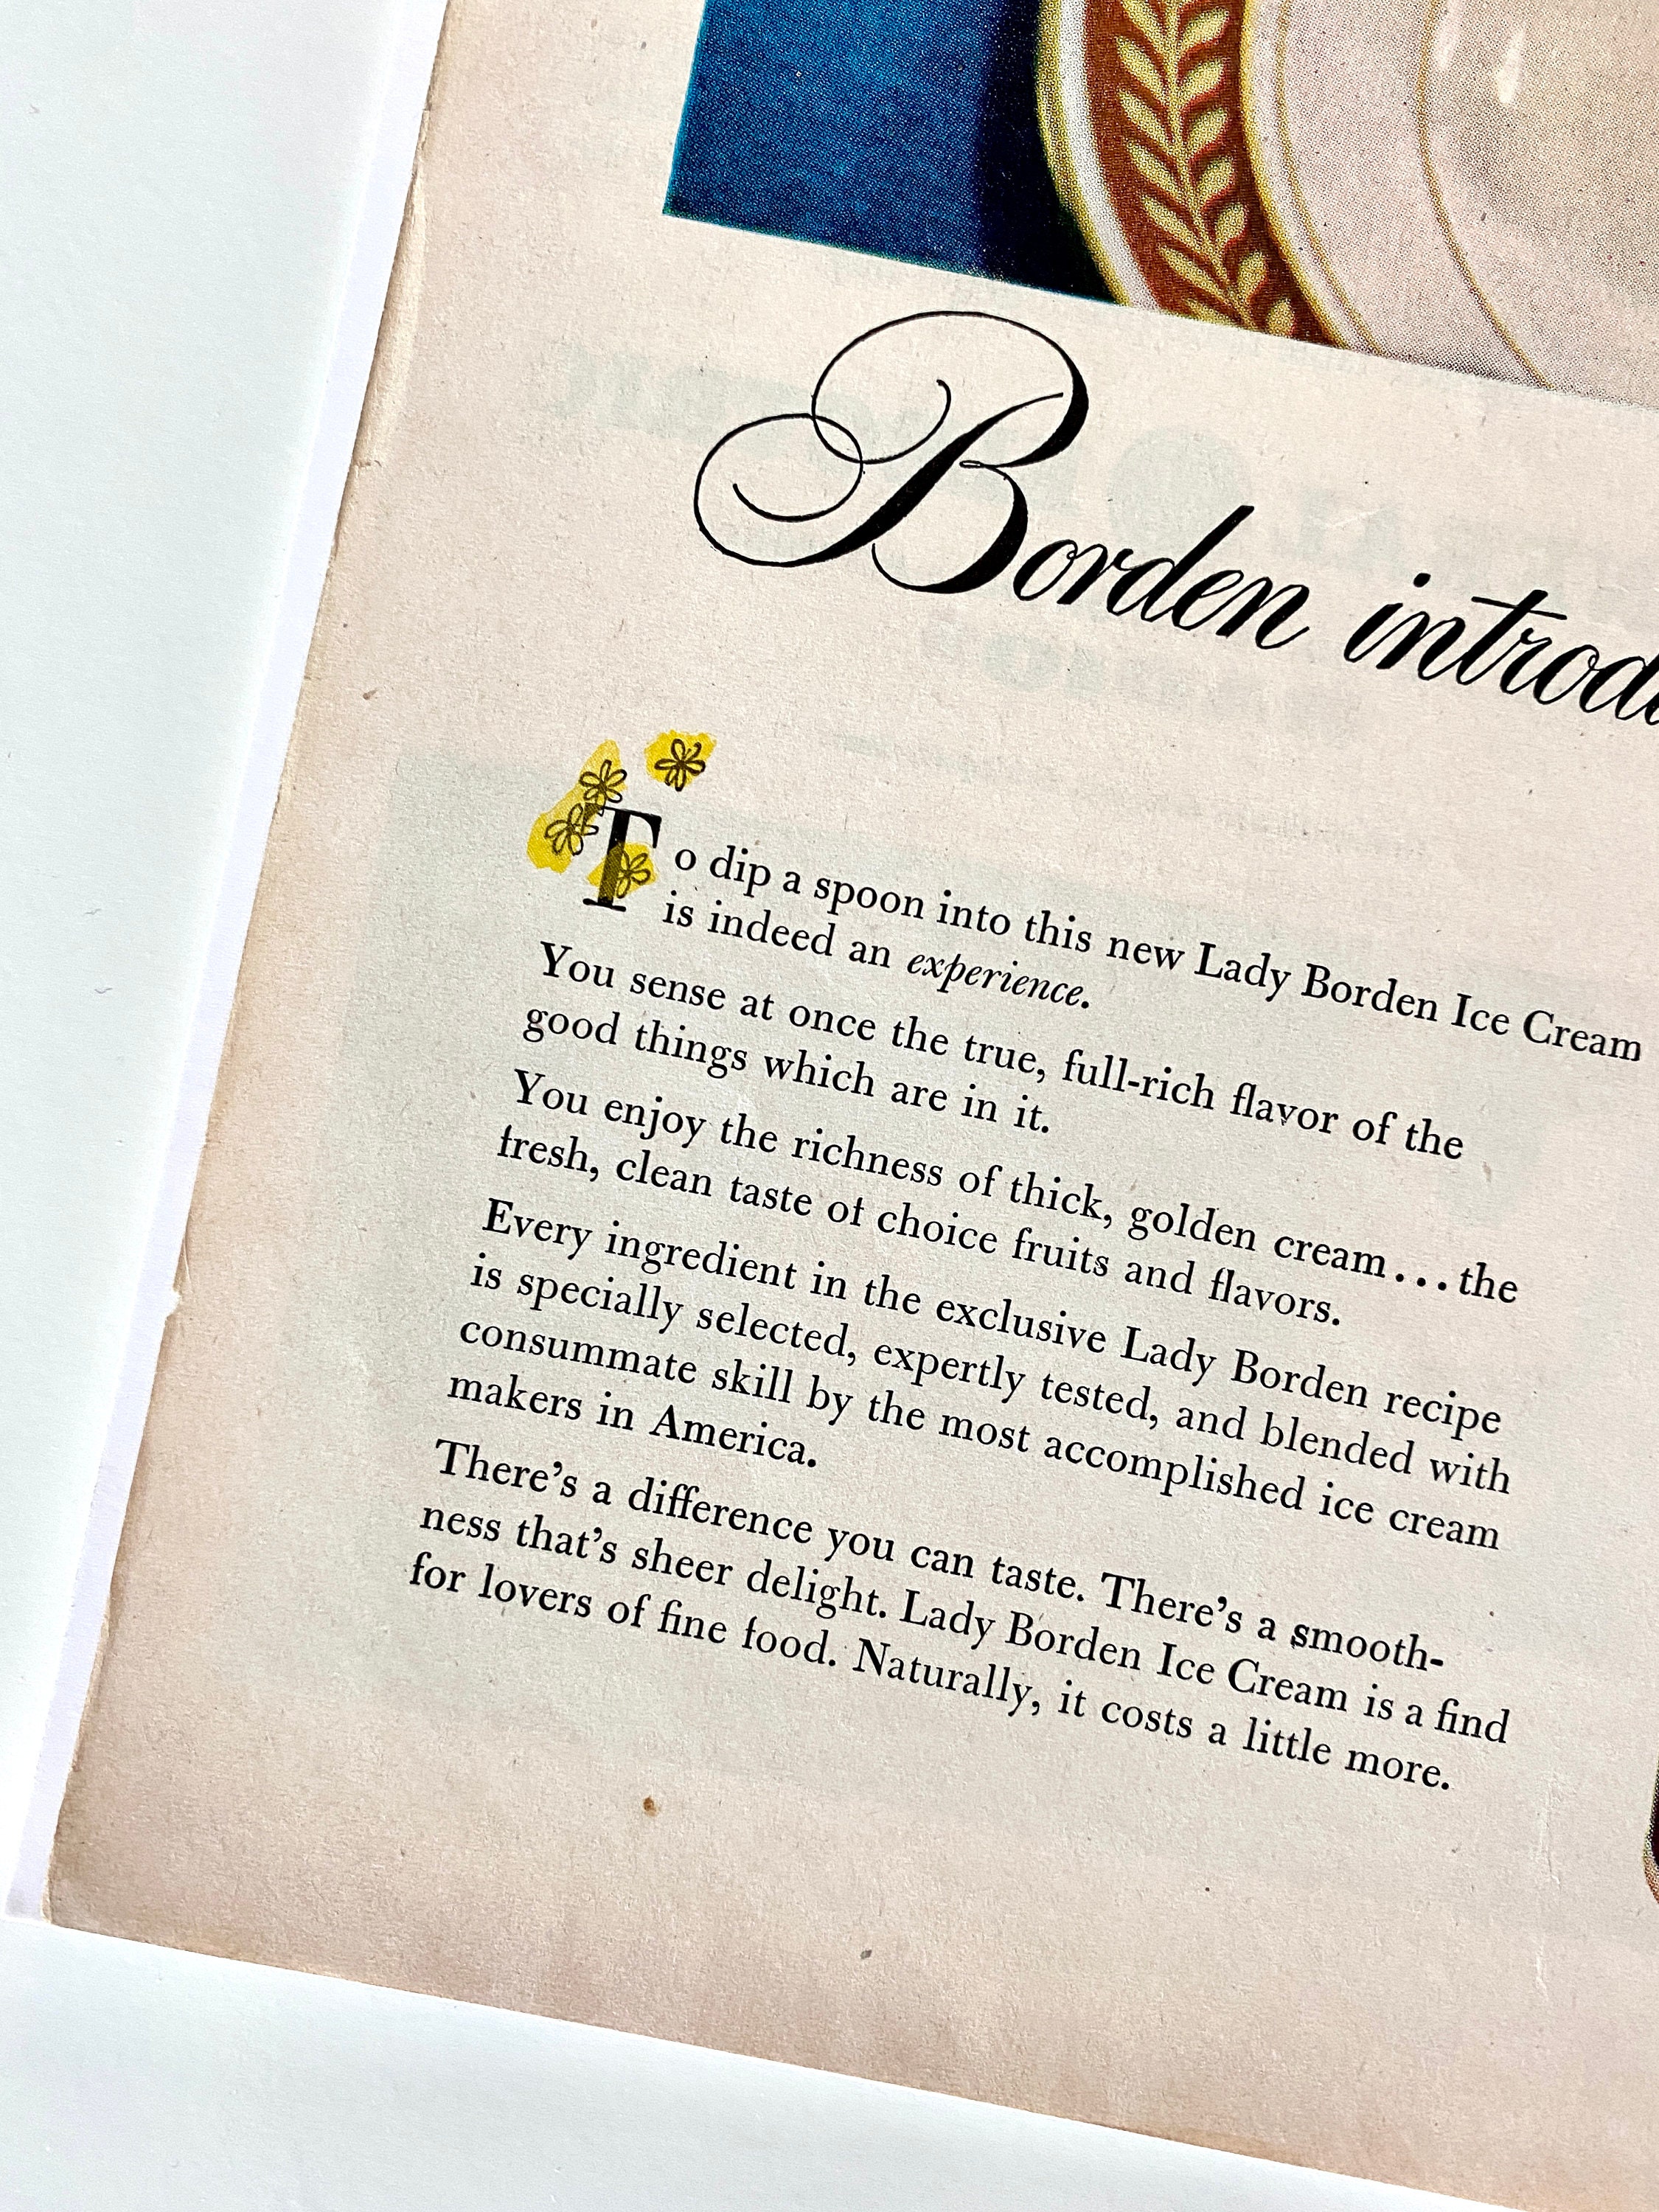 Borden introd
To dip a spoon into this new Lady Borden Ice Cream
is indeed an experience.
You sense at once the true, full-rich flavor of the
good things which are in it.
You enjoy the richness of thick, golden cream...the
fresh, clean taste of choice fruits and flavors.
Every ingredient in the exclusive Lady Borden recipe
is specially selected, expertly tested, and blended with
consummate skill by the most accomplished ice cream
makers in America.
There's a difference you can taste. There's a smooth-
ness that's sheer delight. Lady Borden Ice Cream is a find
for lovers of fine food. Naturally, it costs a little more.